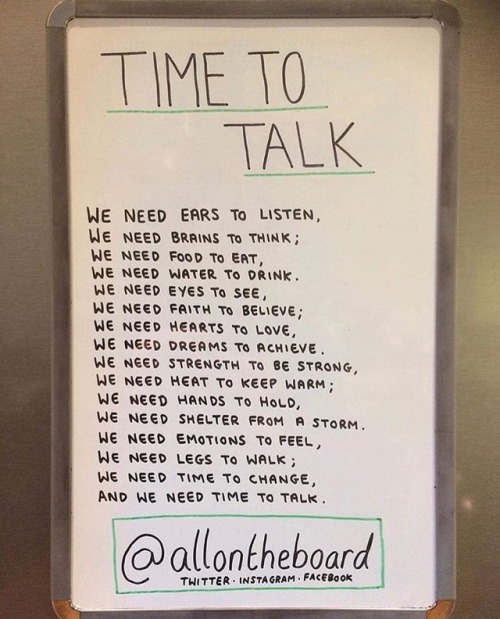 TIME TO
TALK
WE NEED EARS TO LISTEN,
WE NEED BRAINS TO THINK;
WE NEED FOOD TO EAT,
WE NEED WATER TO DRINK.
WE NEED EYES TO SEE,
WE NEED FAITH TO BELIEVE;
WE NEED HEARTS TO LOVE,
WE NEED DREAMS TO ACHIEVE.
WE NEED STRENGTH TO BE STRONG,
WE NEED HEAT TO KEEP WARM;
WE NEED HANDS TO HOLD,
WE NEED SHELTER FROM A STORM.
WE NEED EMOTIONS TO FEEL,
WE NEED LEGS TO WALK;
WE NEED TIME TO CHANGE,
AND WE NEED TIME TO TALK.
@allontheboard
TWITTER · INSTAGRAM · FACEBOOK